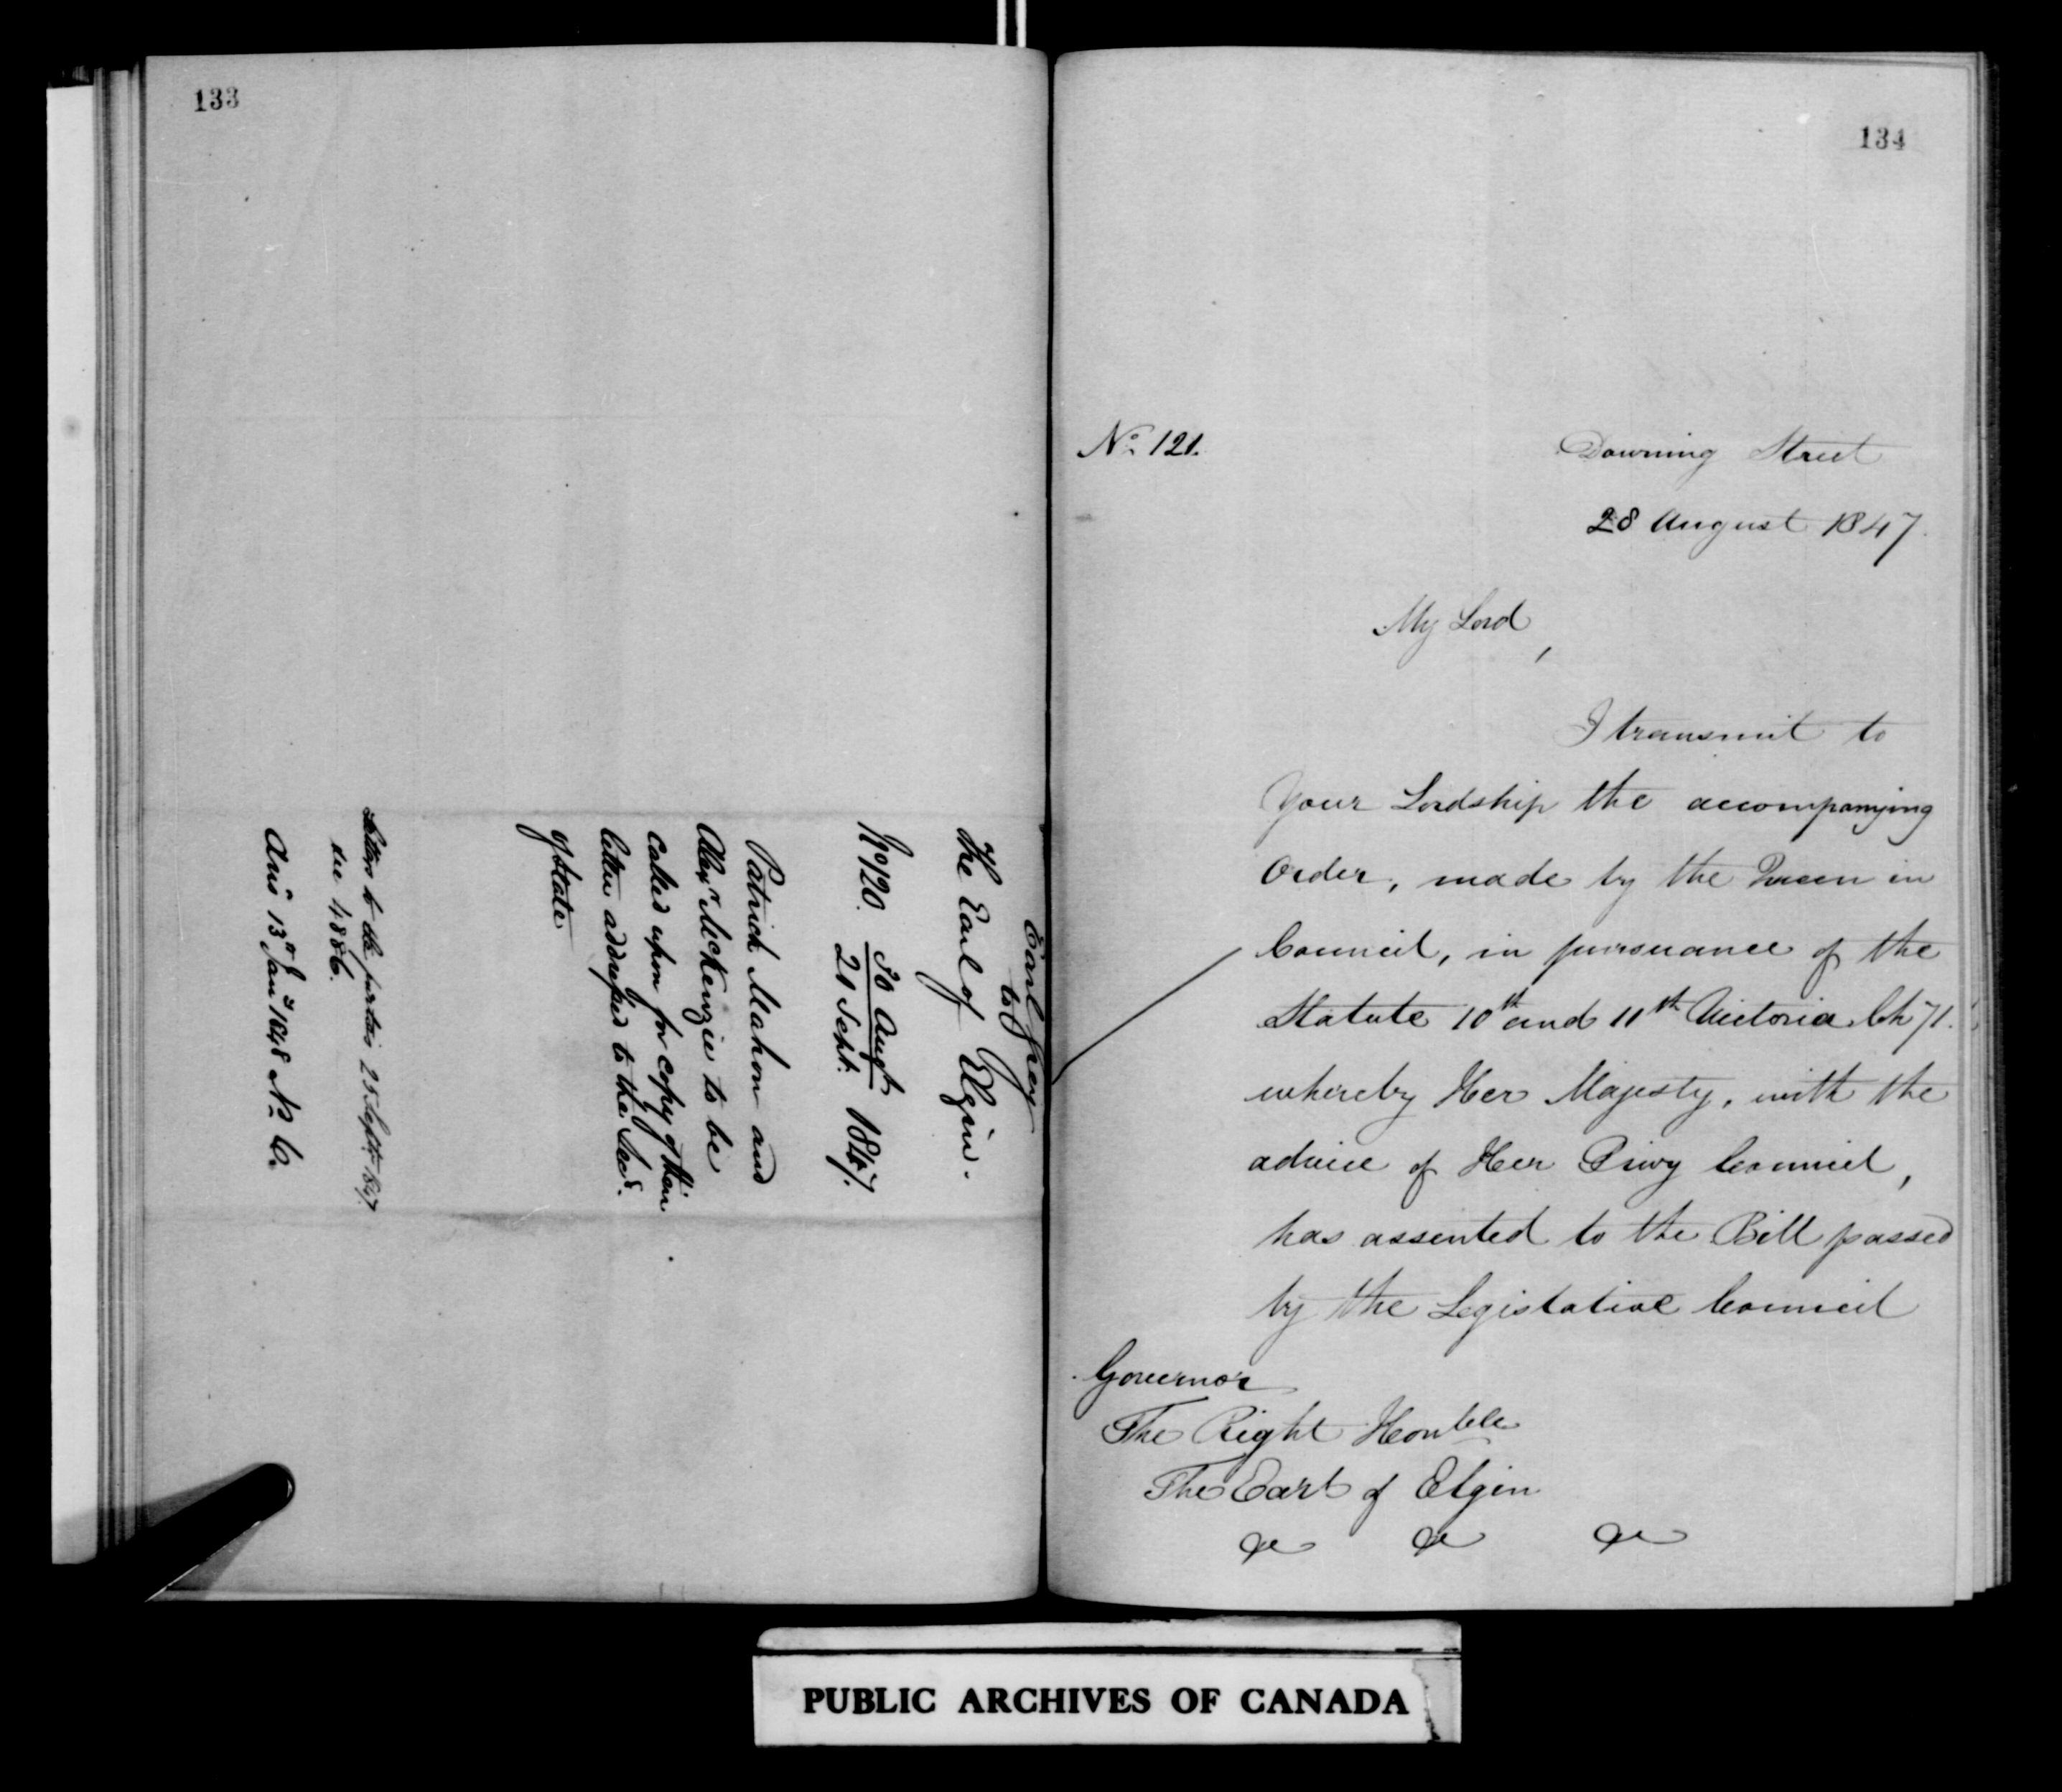 133
Earl Grey
to
The Earl of Elgin.
No 120. 30 Augt
21 Sept. 1847.
Patrick Mahon and
Alexr McKenzie to be
called upon for copy of their
letter addressed to the Secy.
of State
Letters to the parties 25 Septr 1847.
see 4886.
Ansd 13th Jany 1848 No 6.
134
No. 121.
Downing Street
28 August 1847.
My Lord,
I transmit to
Your Lordship the accompanying
Order, made by the Queen in
Council, in pursuance of the
Statute 10th and 11th Victoria Ch 71.
whereby Her Majesty, with the
advice of Her Privy Council,
has assented to the Bill passed
by the Legislative Council
Governor
The Right Honble
The Earl of Elgin
&c &c &c
PUBLIC ARCHIVES OF CANADA